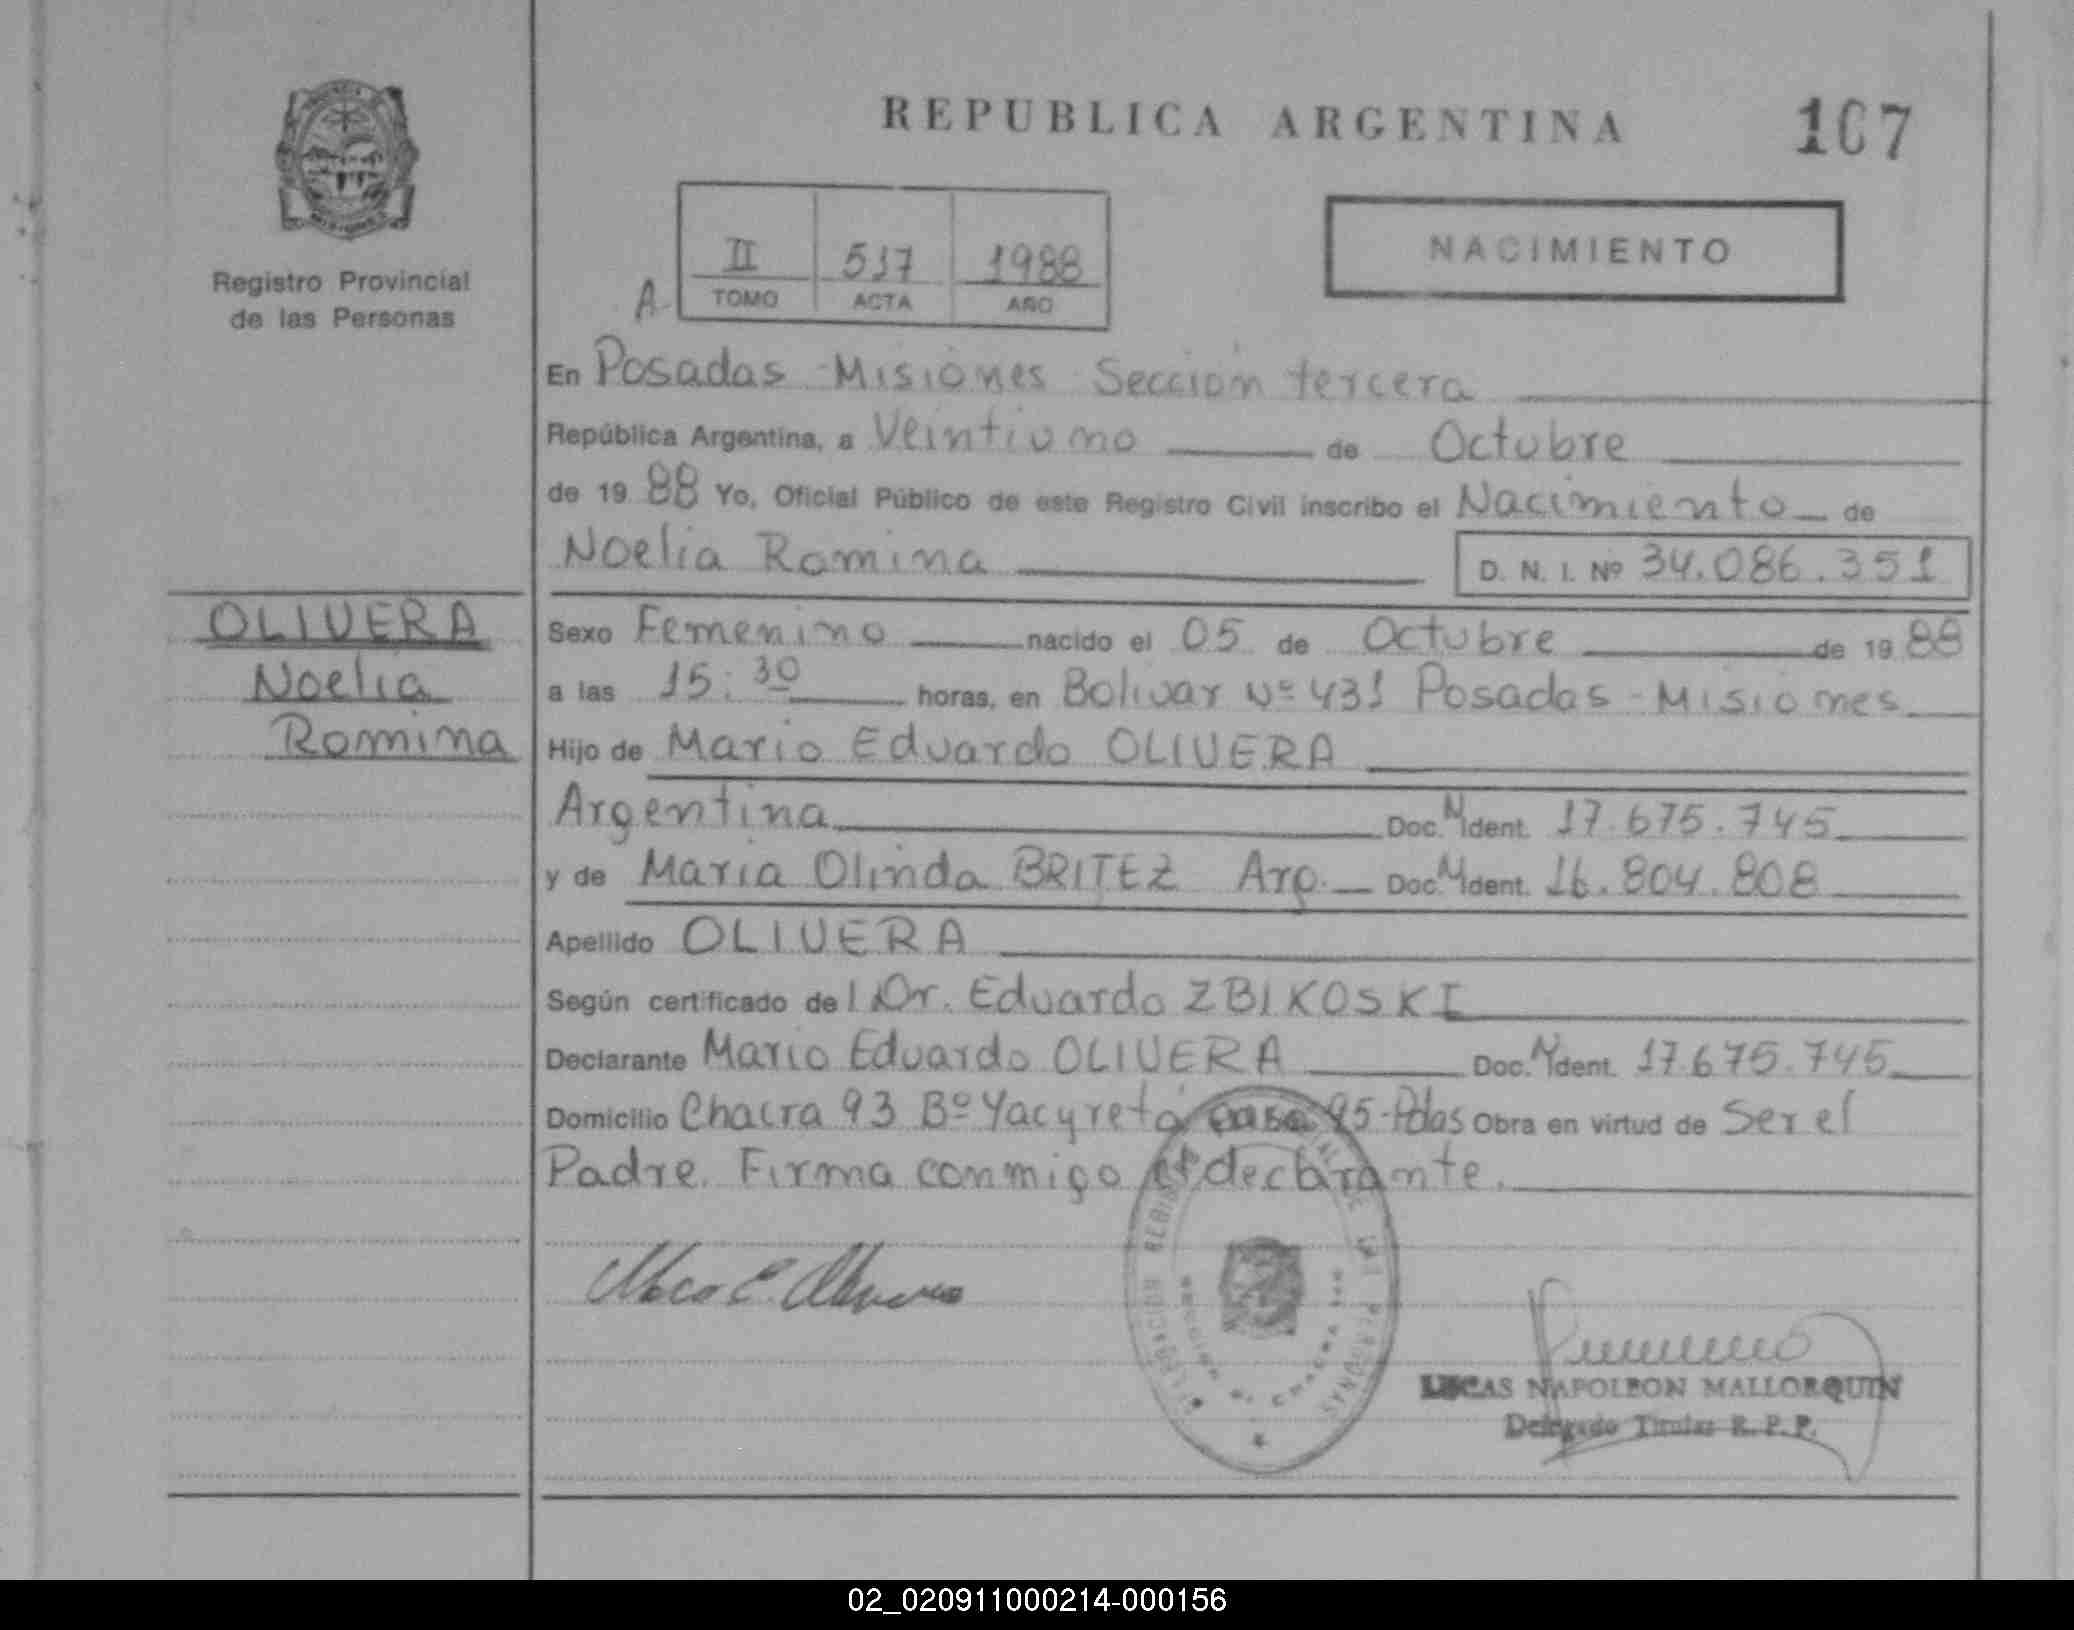 REPUBLICA ARGENTINA
107
Registro Provincial
de las Personas
NACIMIENTO
A
II 517 1988
TOMO ACTA AÑO
En Posadas - Misiones Sección tercera
República Argentina, a Veintiuno de Octubre
de 19 88 Yo, Oficial Público de este Registro Civil inscribo el Nacimiento de
Noelia Romina D. N. I. Nº 34.086.351
OLIVERA
Noelia
Romina
Sexo Femenino nacido el 05 de Octubre de 19 88
a las 15:30 horas, en Bolivar Nº 431 Posadas - Misiones
Hijo de Mario Eduardo OLIVERA
Argentina Doc. N Ident. 17.675.745
y de Maria Olinda BRITEZ Arg. Doc. N Ident. 16.804.808
Apellido OLIVERA
Según certificado de l Dr. Eduardo ZBIKOSKI
Declarante Mario Eduardo OLIVERA Doc. N Ident. 17.675.745
Domicilio Chacra 93 Bº Yacyretá casa 95 - Pdas Obra en virtud de Ser el
Padre. Firma conmigo el declarante.
LUCAS NAPOLEON MALLORQUIN
Delegado Titular R. P. P.
02_020911000214-000156